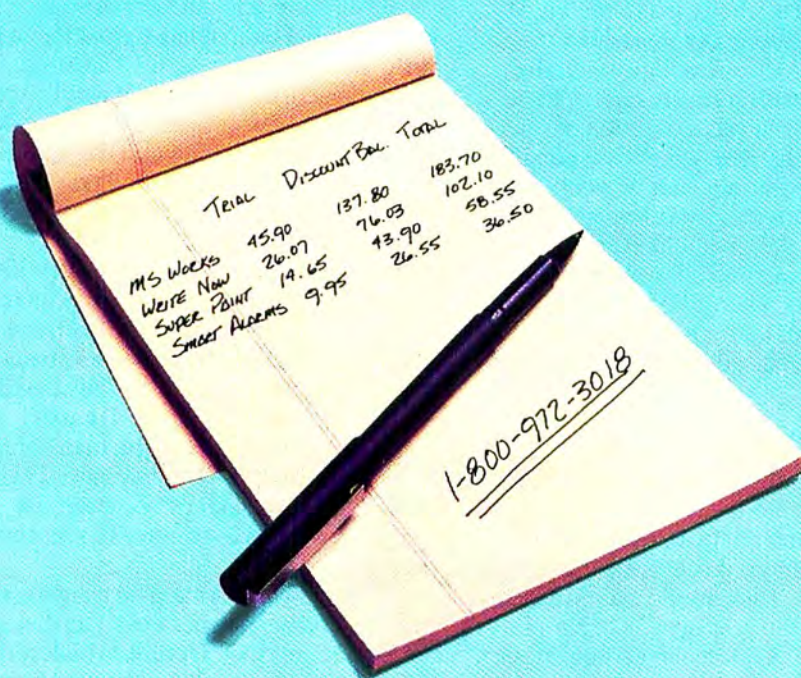 TRIAL DISCOUNT BAL. TOTAL
MS WORKS 45.90 137.80 183.70
WRITE NOW 26.07 76.03 102.10
SUPER PAINT 14.65 43.90 58.55
SMART ALARMS 9.95 26.55 36.50
1-800-972-3018